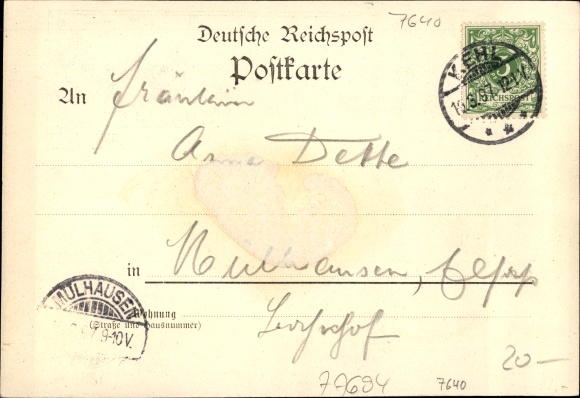 7640
Deutsche Reichspost
Postkarte
KEHL
REICHSPOST
An Fräulein
Anna Dette
in Mülhausen, Elsass
MÜLHAUSEN
9-10V.
Wohnung
(Straße und Hausnummer)
Bahnhof
20-
77694
7640